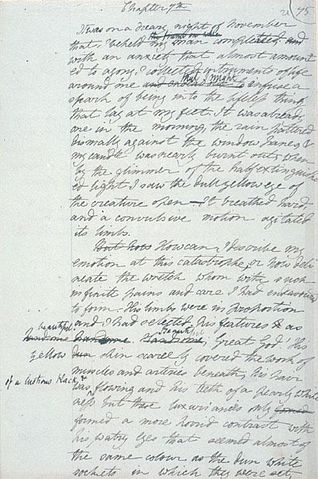 Chapter 7th
75
It was on a dreary night of November
that I beheld my man completed and
with an anxiety that almost amount
ed to agony I collected instruments of life
around me that I might infuse a
spark of being into the lifeless thing
that lay at my feet. It was already
one in the morning, the rain pattered
dismally against the window panes &
my candle was nearly burnt out, when
by the glimmer of the half extinguish
ed light I saw the dull yellow eye of
the creature open – It breathed hard
and a convulsive motion agitated
its limbs.
But how How can I describe my
emotion at this catastrophe, or how deli
neate the wretch whom with such
infinite pains and care I had endeavoured
to form. His limbs were in proportion
and I had selected his features as
beautiful
handsome Great God! His
yellow skin scarcely covered the work of
muscles and arteries beneath; his hair
of a lustrous black, &
was flowing and his teeth of a pearly white
ness but these luxuriances only
formed a more horrid contrast with
his watry eyes that seemed almost of
the same colour as the dun white
sockets in which they were set,